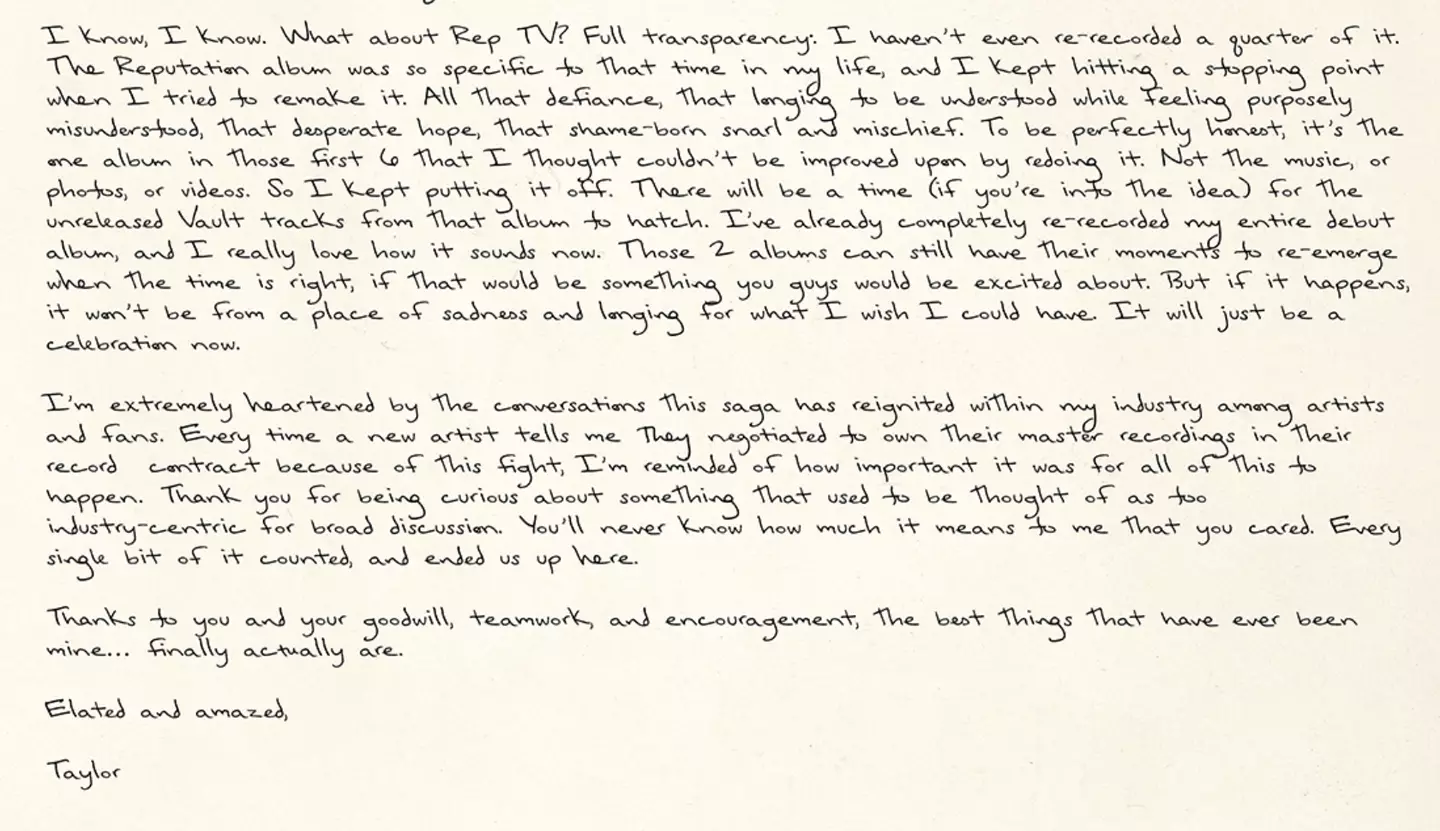 I know, I know. What about Rep TV? Full transparency: I haven't even re-recorded a quarter of it.
The Reputation album was so specific to that time in my life, and I kept hitting a stopping point
when I tried to remake it. All that defiance, that longing to be understood while feeling purposely
misunderstood, that desperate hope, that shame-born snarl and mischief. To be perfectly honest, it's the
one album in those first 6 that I thought couldn't be improved upon by redoing it. Not the music, or
photos, or videos. So I kept putting it off. There will be a time (if you're into the idea) for the
unreleased Vault tracks from that album to hatch. I've already completely re-recorded my entire debut
album, and I really love how it sounds now. Those 2 albums can still have their moments to re-emerge
when the time is right, if that would be something you guys would be excited about. But if it happens,
it won't be from a place of sadness and longing for what I wish I could have. It will just be a
celebration now.
I'm extremely heartened by the conversations this saga has reignited within my industry among artists
and fans. Every time a new artist tells me they negotiated to own their master recordings in their
record contract because of this fight, I'm reminded of how important it was for all of this to
happen. Thank you for being curious about something that used to be thought of as too
industry-centric for broad discussion. You'll never know how much it means to me that you cared. Every
single bit of it counted, and ended us up here.
Thanks to you and your goodwill, teamwork, and encouragement, the best things that have ever been
mine... finally actually are.
Elated and amazed,
Taylor